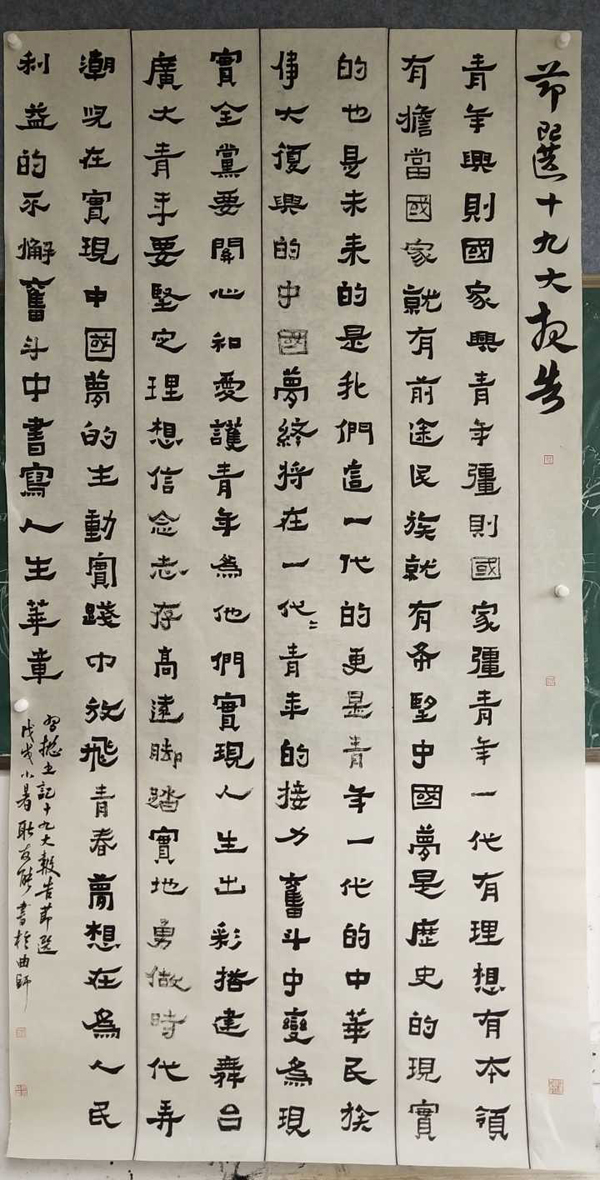 節選十九大报告
青年興則國家興青年彊則國家彊青年一代有理想有本領
有擔當國家就有前途民族就有希望中國夢是歷史的現實
的也是未来的是我們這一代的更是青年一代的中華民族
偉大復興的中國夢終將在一代〻青年的接力奮斗中變為現
實全黨要關心和愛護青年為他們實現人生出彩搭建舞台
廣大青年要堅定理想信念志存高遠脚踏實地勇做時代弄
潮児在實現中國夢的生動實踐中放飛青春夢想在為人民
利益的不懈奮斗中書寫人生華章
習總书記十九大報告節選
戊戌小暑耿書於曲師